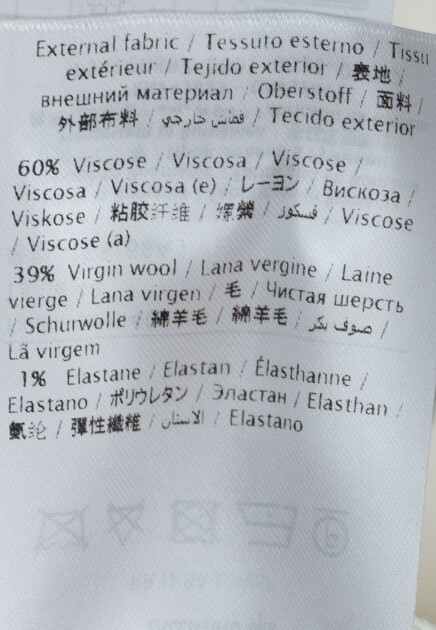 External fabric / Tessuto esterno / Tissu
extérieur / Tejido exterior / 表地 /
внешний материал / Oberstoff / 面料 /
外部布料 / قماش خارجي / Tecido exterior
60% Viscose / Viscosa / Viscose /
Viscosa / Viscosa (e) / レーヨン / Вискоза /
Viskose / 粘胶纤维 / 嫘縈 / فسكوز / Viscose
/ Viscose (a)
39% Virgin wool / Lana vergine / Laine
vierge / Lana virgen / 毛 / Чистая шерсть
/ Schurwolle / 綿羊毛 / 綿羊毛 / صوف بكر /
Lã virgem
1% Elastane / Elastan / Élasthanne /
Elastano / ポリウレタン / Эластан / Elasthan /
氨纶 / 彈性纖維 / الاستان / Elastano